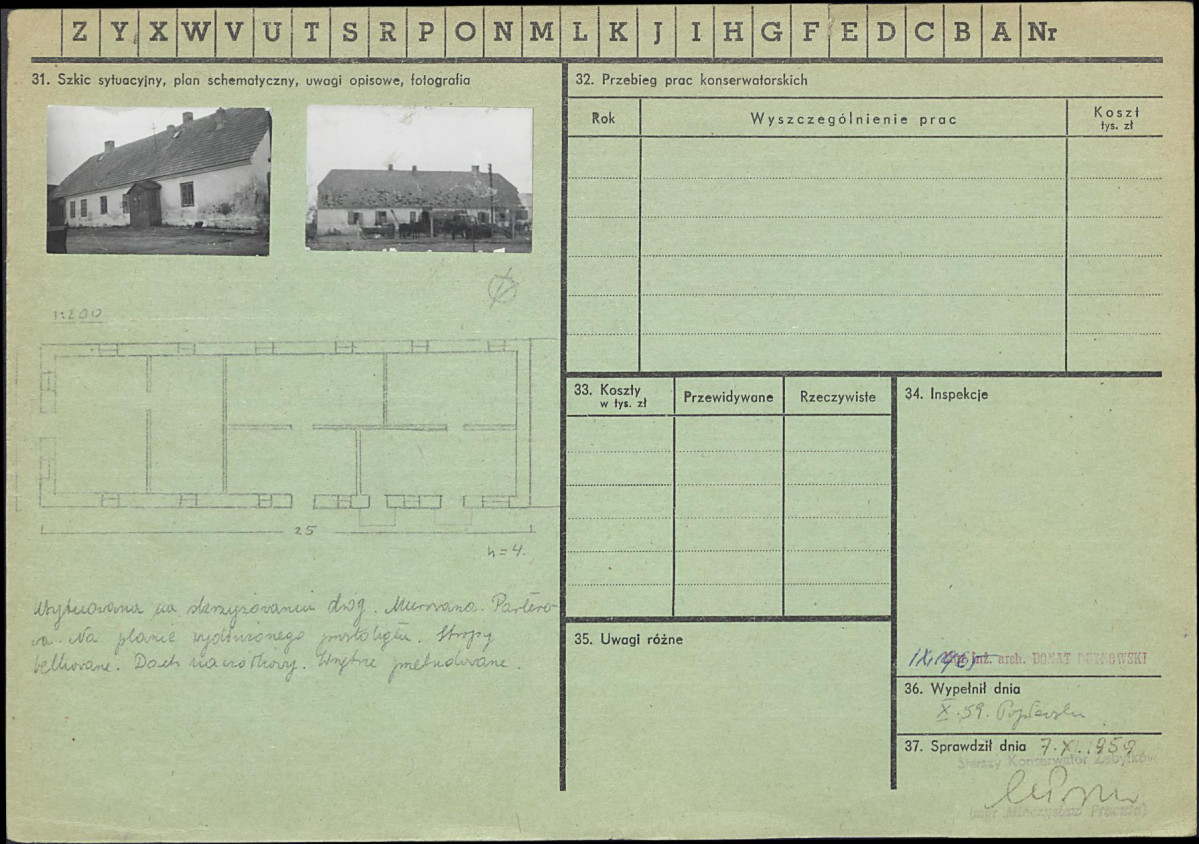 Z Y X W V U T S R P O N M L K J I H G F E D C B A Nr
31. Szkic sytuacyjny, plan schematyczny, uwagi opisowe, fotografia
1:200
25
h=4.
Usytuowana na skrzyżowaniu dróg. Murowana. Partero-
wa. Na planie wydłużonego prostokąta. Stropy
belkowane. Dach naczółkowy. Wnętrze przebudowane.
32. Przebieg prac konserwatorskich
Rok
Wyszczególnienie prac
Koszt
tys. zł
33. Koszty
w tys. zł
Przewidywane
Rzeczywiste
34. Inspekcje
inż. arch. DONAT
35. Uwagi różne
36. Wypełnił dnia
X.59.
37. Sprawdził dnia 7.XI.1959
Starszy Konserwator Zabytków
mgr Mieczysław